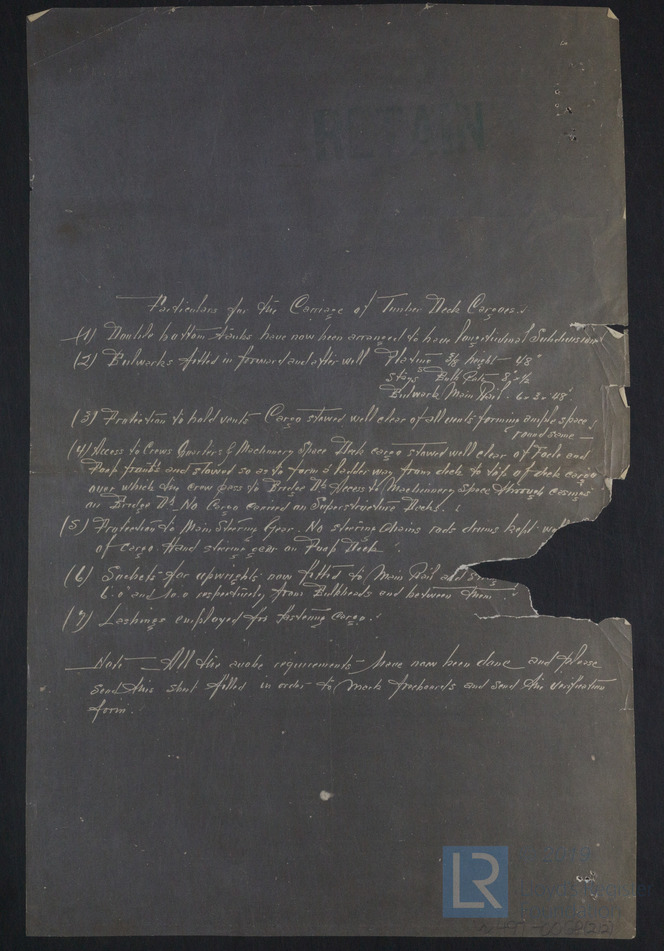 RETAIN
Particulars for the Carriage of Timber Deck Cargoes.
(1) Double bottom tanks have now been arranged to have longitudinal Subdivision
(2) Bulwarks fitted in forward and after well Plating 3/8 height 48"
Stays Bulb Plate
Bulwark Main Rail
(3) Protection to hold vents Cargo stowed well clear of all vents forming ample space
round same
(4) Access to Crews Quarters & Machinery Space Deck cargo stowed well clear of Focle and
Poop fronts and stowed so as to form a ladder way from deck to top of deck cargo
over which the crew pass to Bridge Dk Access to Machinery Space through casings
on Bridge Dk. No Cargo carried on Superstructure Decks.
(5) Protection to Main Steering Gear. No steering chains rods drums kept
of cargo. Hand steering gear on Poop Deck
(6) Sockets for uprights now fitted to Main Rail and
6.0" and 10.0 respectively from Bulkheads and between them
(7) Lashings employed for fastening cargo.
Note All the above requirements have now been done and please
send this sheet filled in order to mark freeboards and send the verification
form.
LR
Foundation